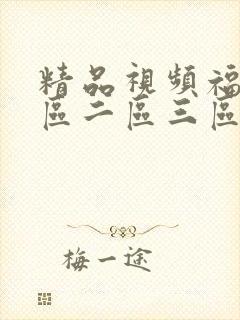 精品視頻福
區二區三區
梅一途